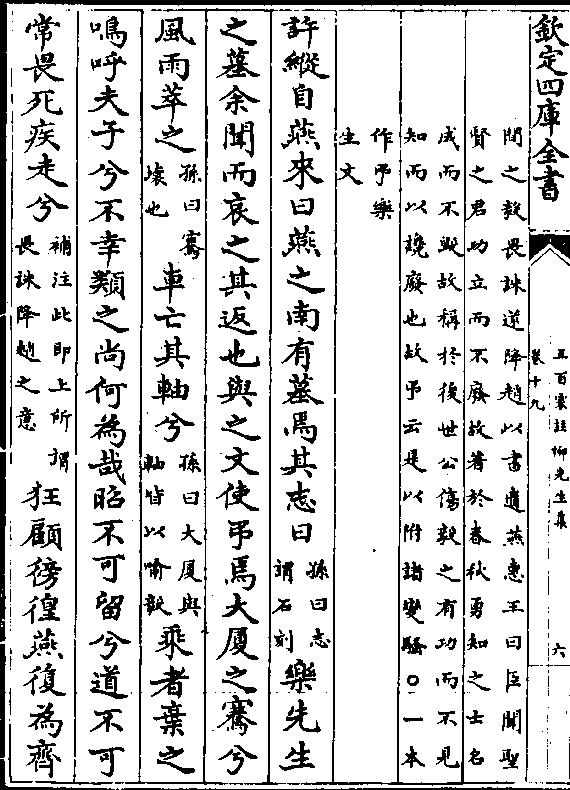 欽定四庫全書
五百家註柳先生集
卷十九
六
間之毅畏誅遂降趙以書遺燕惠王曰臣聞聖
賢之君功立而不廢故著於春秋勇知之士名
成而不毀故稱於後世公傷毅之有功而不見
知而以讒廢也故弔云是以附諸變騷○一本
作弔樂
生文
許縱自燕來曰燕之南有墓焉其志曰孫曰志謂石刻樂先生
之墓余聞而哀之其返也與之文使弔焉大厦之騫兮
風雨萃之孫曰騫壞也車亡其軸兮孫曰大厦與軸皆以喻毅乘者棄之
嗚呼夫子兮不幸類之尚何為哉昭不可留兮道不可
常畏死疾走兮補注此即上所謂畏誅降趙之意狂顧徬徨燕復為齊